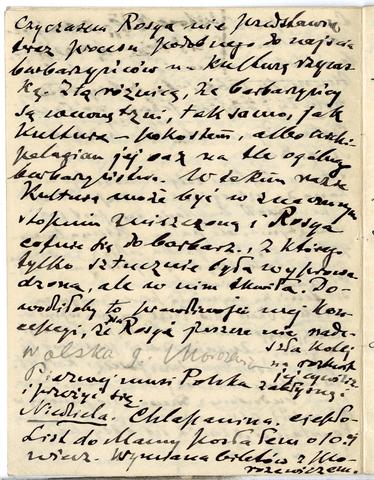 Czy czasem Rosya nie przedstawia
teraz procesu podobnego do najścia
barbarzyńców na kulturę rzyms-
ką. Z tą różnicą, że barbarzyńcy
są wewnętrzni, tak samo, jak
kultura – pokostem, albo archi-
pelagiem jej oaz na tle ogólnego
barbarzyństwa. W takim razie
kultura może być w znacznym
stopniu zniszczoną i Rosya
cofnie się do barbarz., z którego
tylko sztucznie była wyprowa-
dzona, ale w nim tkwiła. Do-
wodziłoby to prawdziwości mej kon-
cepcyi, że na Rosyę jeszcze nie nade-
szła kolej
Pierwej musi Polska
i przeżyć się.
Niedziela. Chlapanina. ciepło.
List do Mamy posłałem o 10.
wiecz. Wymiana biletów z Mo-
rozewiczem.